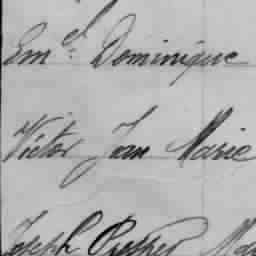 Em.el Dominique
Victor Jean Marie
Joseph Prosper